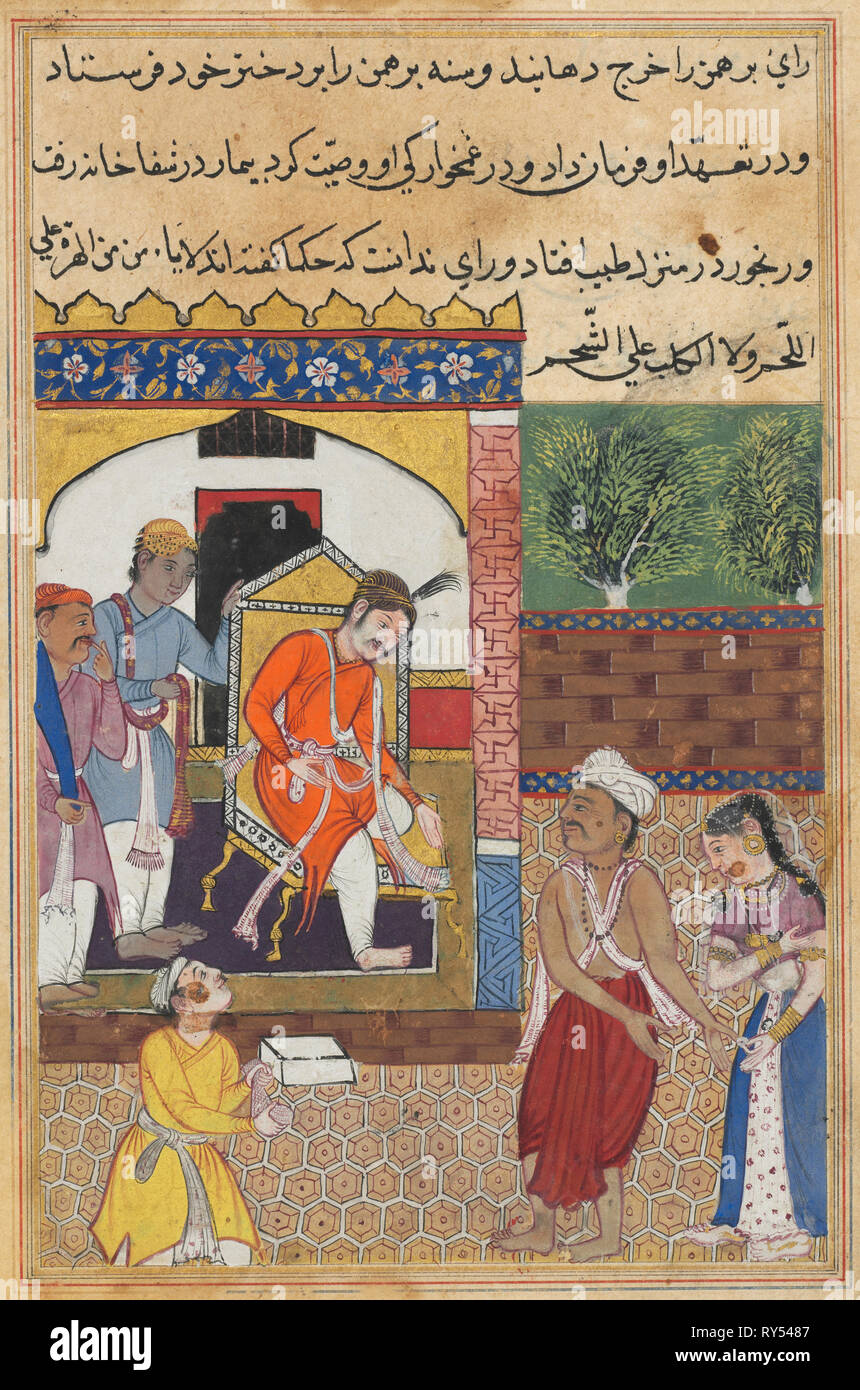 راي برهمن را خرج دهانيد و سنه برهمن را بر دختر خود فرستاد
و در تعهّد او فرمان داد و در غمخوارگي او وصيّت كرد بيمار در شفا خانه رفت
و رنجور در منزل طبيب افتاد و راي ندانست كه حكما گفته اند لا يا٠من من الهرّة علي
اللّحم ولا الكلب علي الشّحم
alamy
alamy
Image ID: RY5487
www.alamy.com